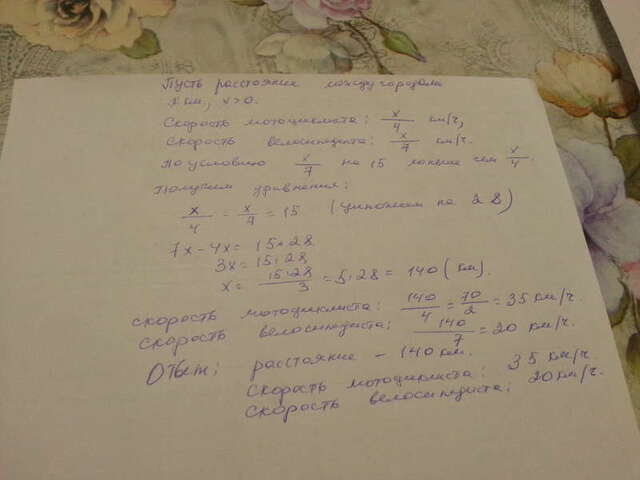 Пусть расстояние между городами
x км, x>0.
Скорость мотоциклиста: x/4 км/ч,
Скорость велосипедиста: x/7 км/ч.
По условию x/7 на 15 меньше чем x/4.
Получим уравнения:
x/4 - x/7 = 15 (умножаем на 28)
7x-4x = 15·28
3x = 15·28
x = 15·28/3 = 5·28 = 140 (км).
скорость мотоциклиста: 140/4 = 70/2 = 35 км/ч.
Скорость велосипедиста: 140/7 = 20 км/ч.
Ответ: расстояние - 140 км.
Скорость мотоциклиста: 35 км/ч.
Скорость велосипедиста: 20 км/ч.